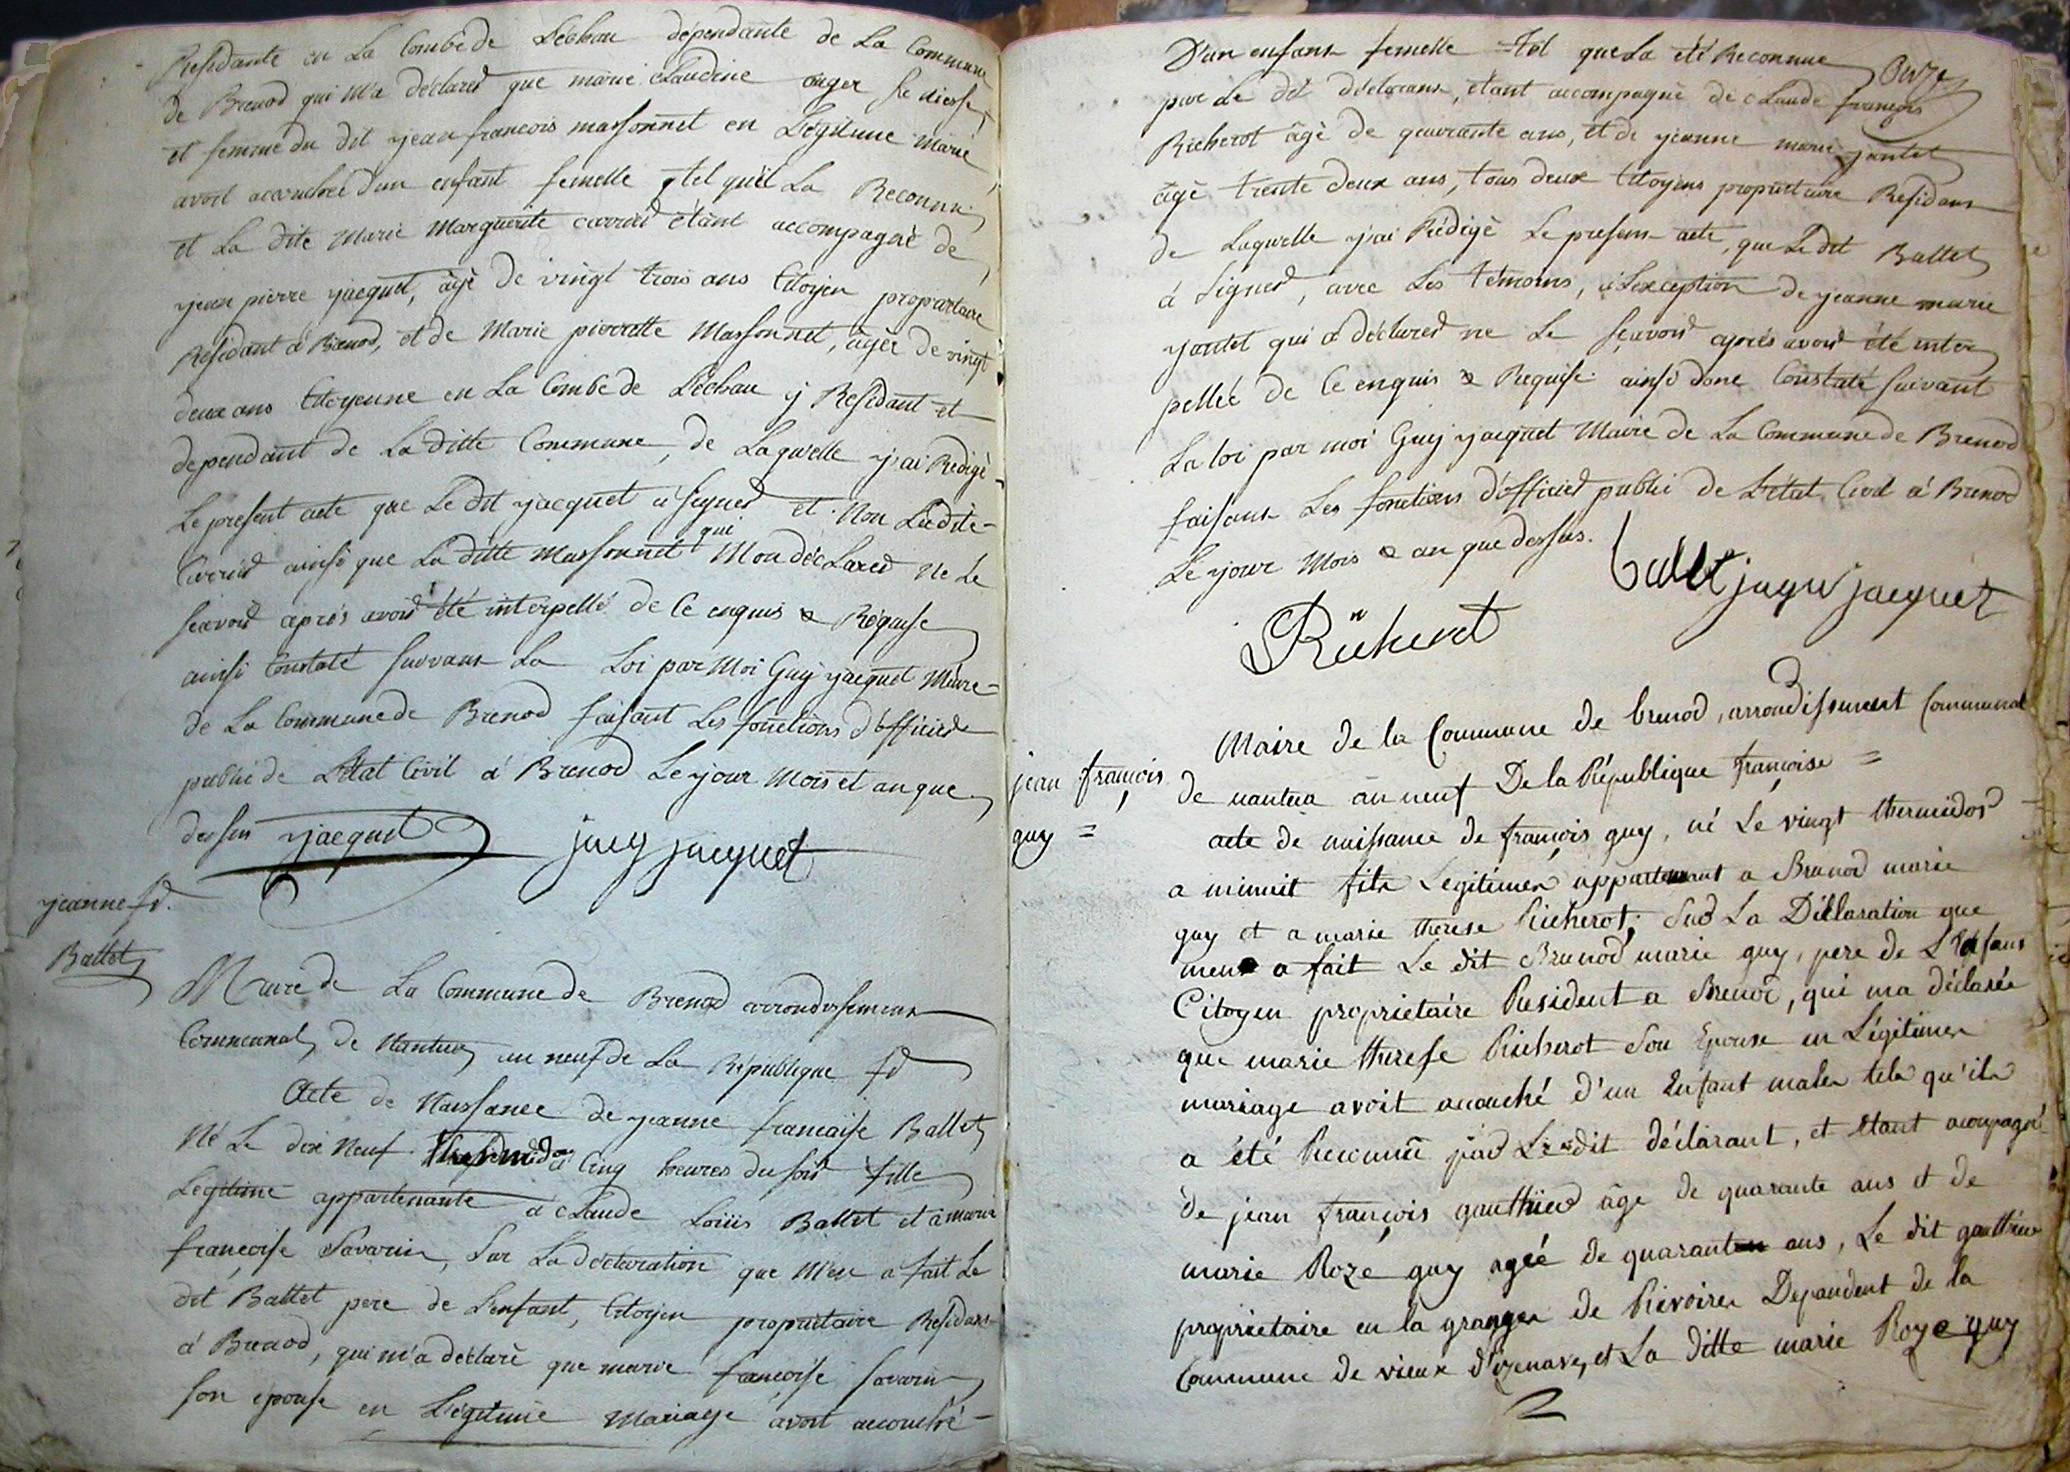 Residante en La Combe de Léchau dépendante de La Commune
de Brenod qui M'a déclared que marie claudine auger sa niesse
et femme du dit yean francois massonnet en Légitime Marié
avoit accouchée d'un enfant femelle, tel qu'il La Reconnu
et La dite Marie Marguerite carried étant accompagné de
yean pierre yacquet, âgé de vingt trois ans Citoyen propriétaire
Résidant à Brenod, et de Marie pierrette Massonnet, âgée de vingt
deux ans Citoyenne en La Combe de Léchau y Résidant et
dependant de La ditte Commune, de Laquelle y'ai Rédigé
Le présent acte que Le dit yacquet à signed et Non La dite
Carried ainsi que La ditte Massonnet qui M'on décLared ne Le
sçavoid après avoid été interpellé de Ce enquis & Réquise
ainsi Constaté suivant La Loi par Moi Guy yacquet Maire
de La Commune de Brenod faisant Les fonctions d'officied
public de L'état Civil à Brenod Le your Mois et an que
dessus yacquet juy jacquet
yeanne fd.
Ballet
Maire de La Commune de Brenod arrondissement
Communal de Nantua an neuf de La République fd
Acte de Naissance de yeanne francaise Ballet
Né Le dix neuf Thermidor à Cinq heures du soir fille
Légitime appartenante à cLaude Loüis Ballet et à marie
françoise Savarin, Sur La déclaration que M'en a fait Le
dit Ballet pere de L'enfant, Citoyen propriétaire Résidant
à Brenod, qui m'a déclaré que marie françoise savarin
son épouse en Légitime Mariage avoit accouchée
D'un enfant femelle tel que La été Reconnue
par Le dit déclarant, étant accompagné de cLaude françois
Richerot âgé de quarante ans, et de yeanne marie yantet
âgé trente deux ans, tous deux Citoyens propriétaire Résidans
de Laquelle y'ai Rédigé Le présent acte, que Le dit Ballet
à signed, avec Les témoins, à L'exception de yeanne marie
yantet qui a déclared ne Le sçavoid après avoid été inter
pellée de Ce enquis & Requise. ainsi donc Constaté suivant
La loi par moi Guy yacquet Maire de La Commune de Brenod
faisant Les fonctions d'officied public de L'état Civil à Brenod
Le your Mois & an que dessus.
Ballet juy jacquet
Richerot
jean françois
guy =
Maire de la Commune de brenod, arrondissement Communal
de nantua an neuf De la République françoise =
acte de naissance de françois guy, né Le vingt thermidor
a minuit fils Legitime appartenant a Brunod marie
guy et a marie therese Richerot; Sur La Déclaration que
men a fait Le dit Brunod marie guy, pere de L'enfant
Citoyen propriétaire Résident a Brenod, qui ma déclarée
que marie therese Richerot Son Epouse en Légitime
mariage avoit accouché d'un Enfant male tels qu'il
a été Reconnu par Le dit déclarant, et étant acompagné
De jean françois gauthier âge de quarante ans et de
marie Roze guy agée de quarante ans, Le dit gauthier
propriétaire en la grange de Rivoire Dépandent de la
Commune de vieux d'izenave, et La ditte marie Roze guy